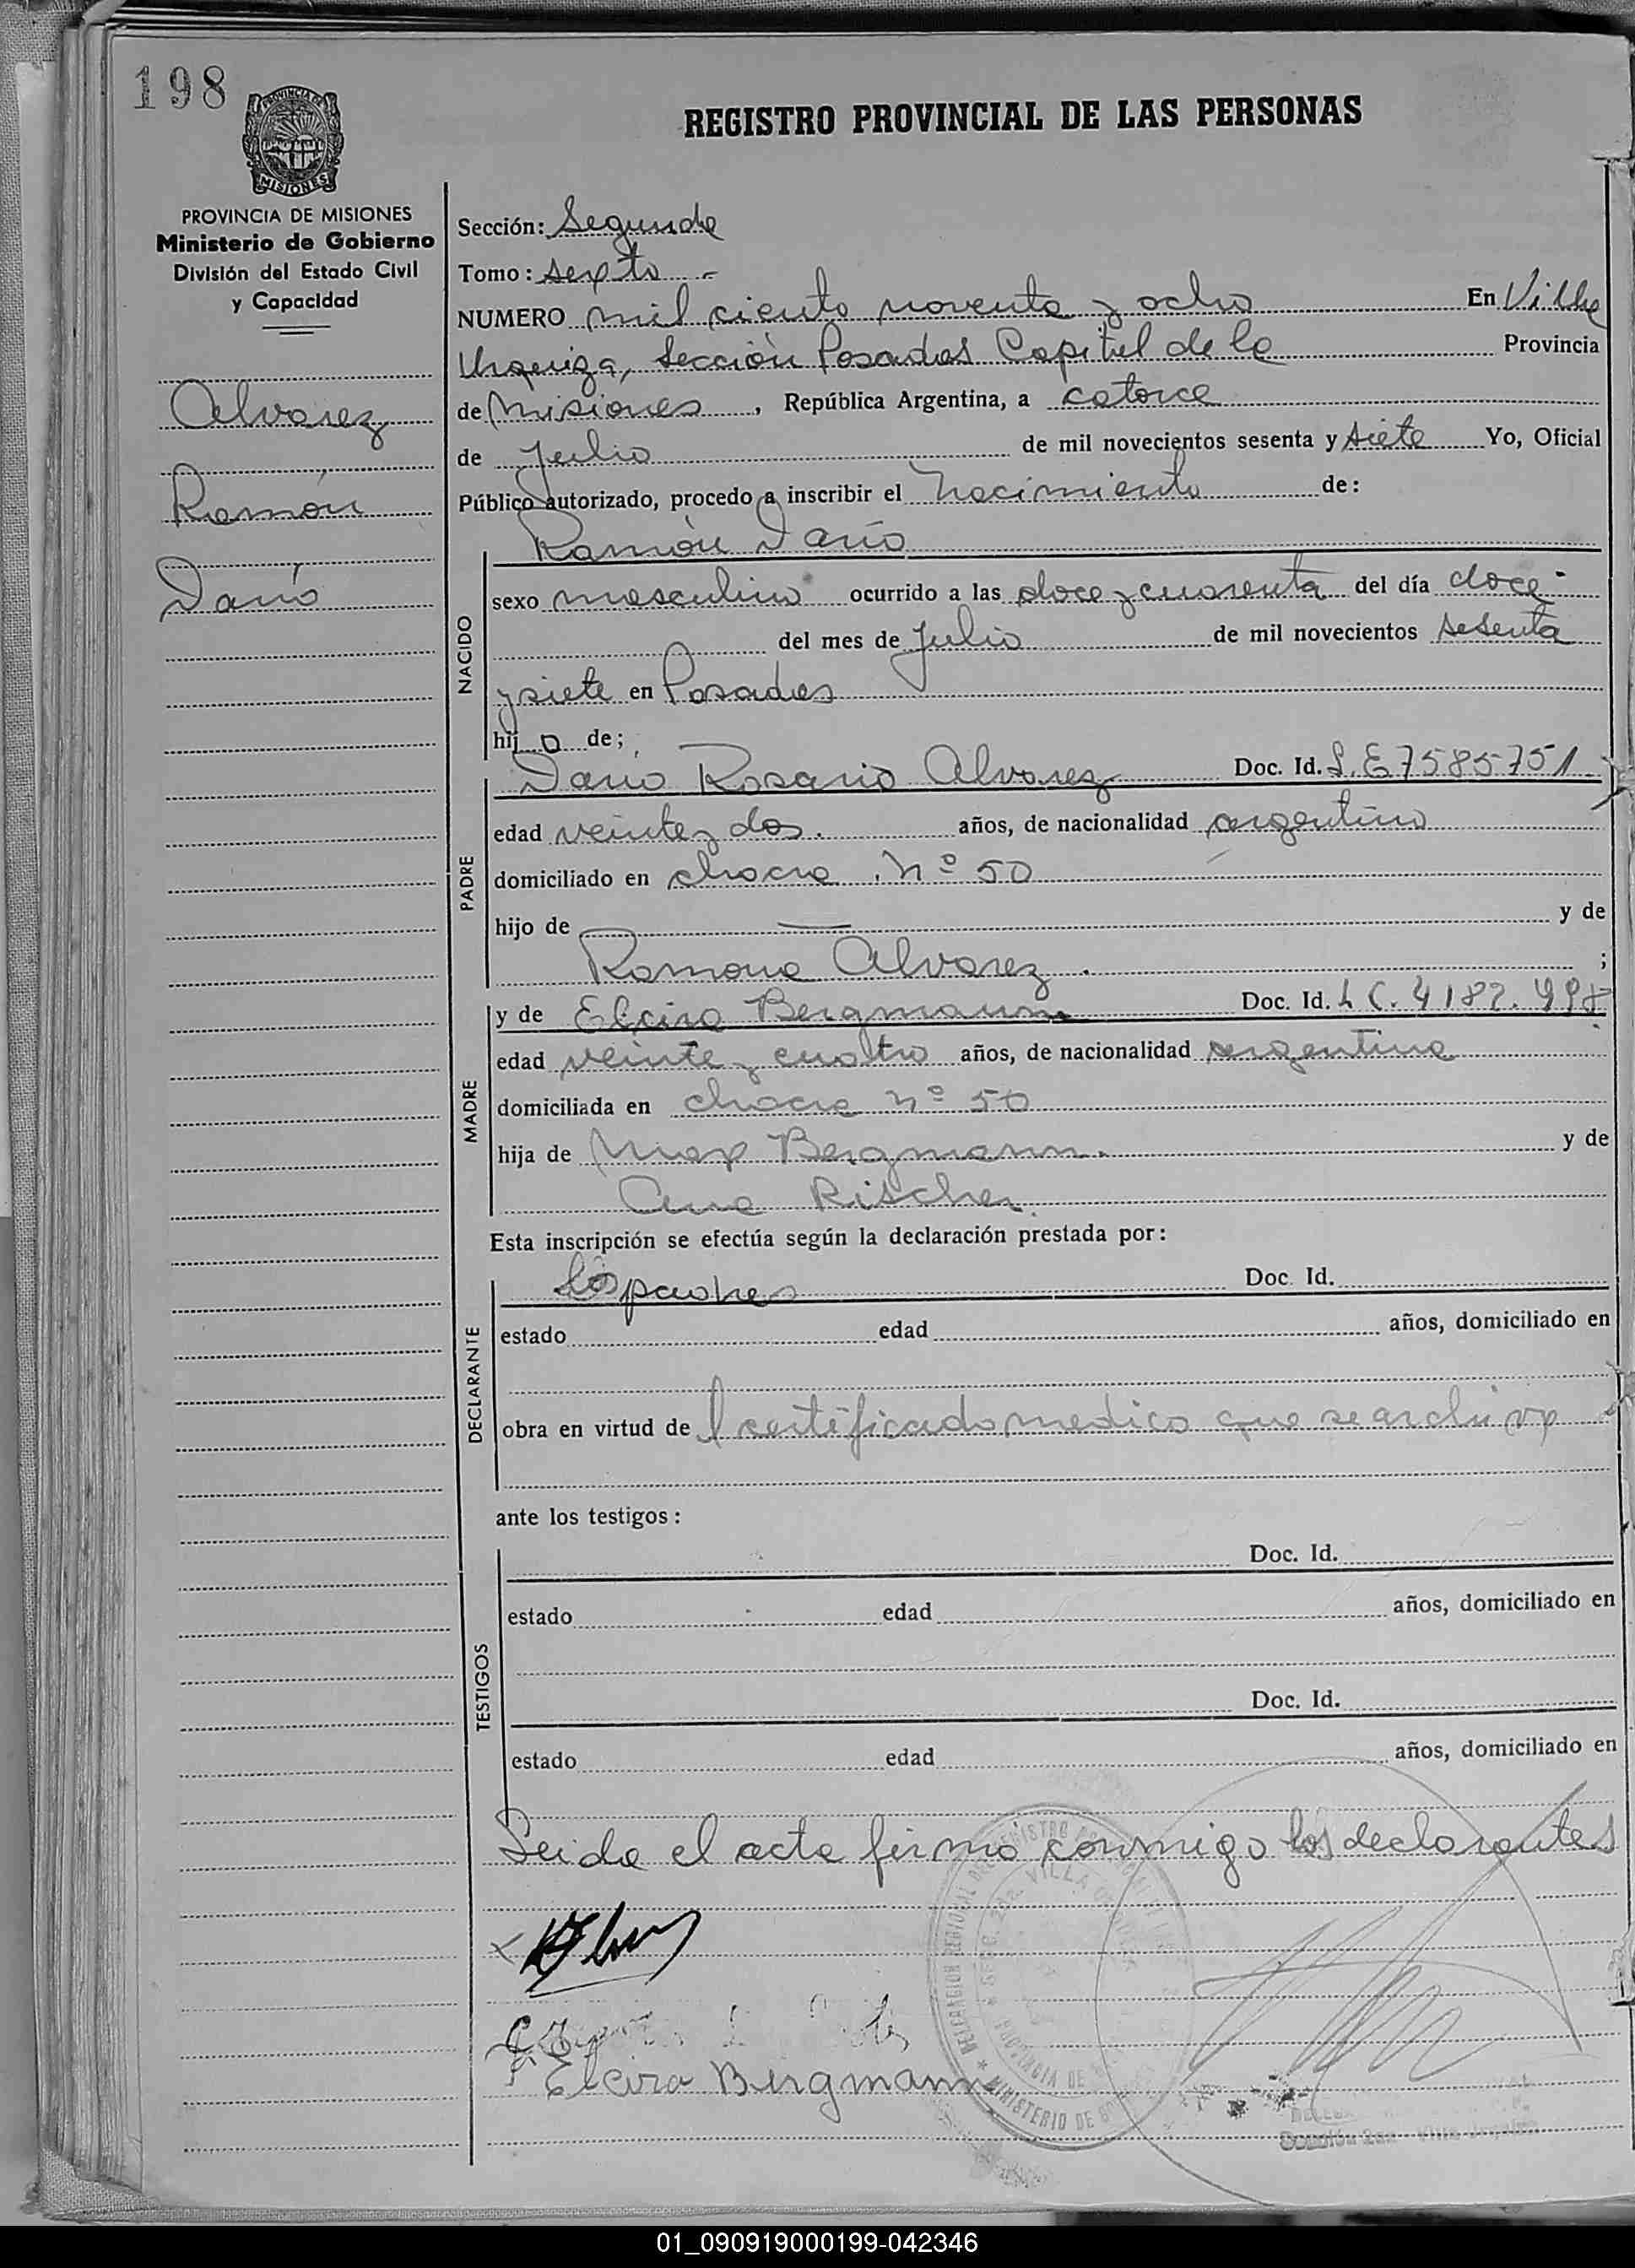 198
PROVINCIA DE MISIONES
REGISTRO PROVINCIAL DE LAS PERSONAS
PROVINCIA DE MISIONES
Ministerio de Gobierno
División del Estado Civil
y Capacidad
Alvarez
Ramón
Darío
Sección: Segunda
Tomo: sexto
NUMERO mil ciento noventa y ocho En Villa
Urquiza, Sección Posadas Capital de la Provincia
de Misiones, República Argentina, a catorce
de Julio de mil novecientos sesenta y siete Yo, Oficial
Público autorizado, procedo a inscribir el nacimiento de:
Ramón Darío
NACIDO
sexo masculino ocurrido a las doce y cuarenta del día doce
del mes de Julio de mil novecientos sesenta
y siete en Posadas
hijo de;
PADRE
Darío Rosario Alvarez Doc. Id. L. E 7585751
edad veinte y dos. años, de nacionalidad argentino
domiciliado en chacra Nº 50
hijo de — y de
Ramona Alvarez. ;
MADRE
y de Elcira Bergmann Doc. Id. L C. 4182.
edad veinte y cuatro años, de nacionalidad argentina
domiciliada en chacra nº 50
hija de Max Bergmann. y de
Ana Rischer.
Esta inscripción se efectúa según la declaración prestada por:
DECLARANTE
Los padres Doc. Id.
estado edad años, domiciliado en
obra en virtud de l certificado medico que se archiva
ante los testigos:
TESTIGOS
Doc. Id.
estado edad años, domiciliado en
Doc. Id.
estado edad años, domiciliado en
Leida el acta firmó conmigo los declarantes
Elcira Bergmann
MINISTERIO DE
01_090919000199-042346